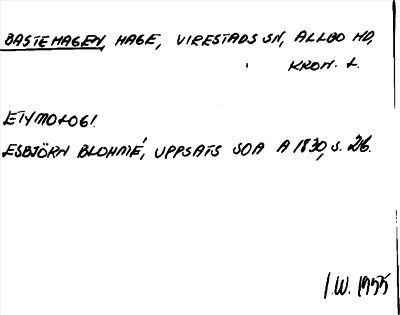 BASTEHAGEN, HAGE, VIRESTADS SN, ALLBO HD,
KRON. L.
ETYMOLOGI.
ESBJÖRN BLOHMÉ, UPPSATS SOA A 1830, S. 26.
I.W. 1955